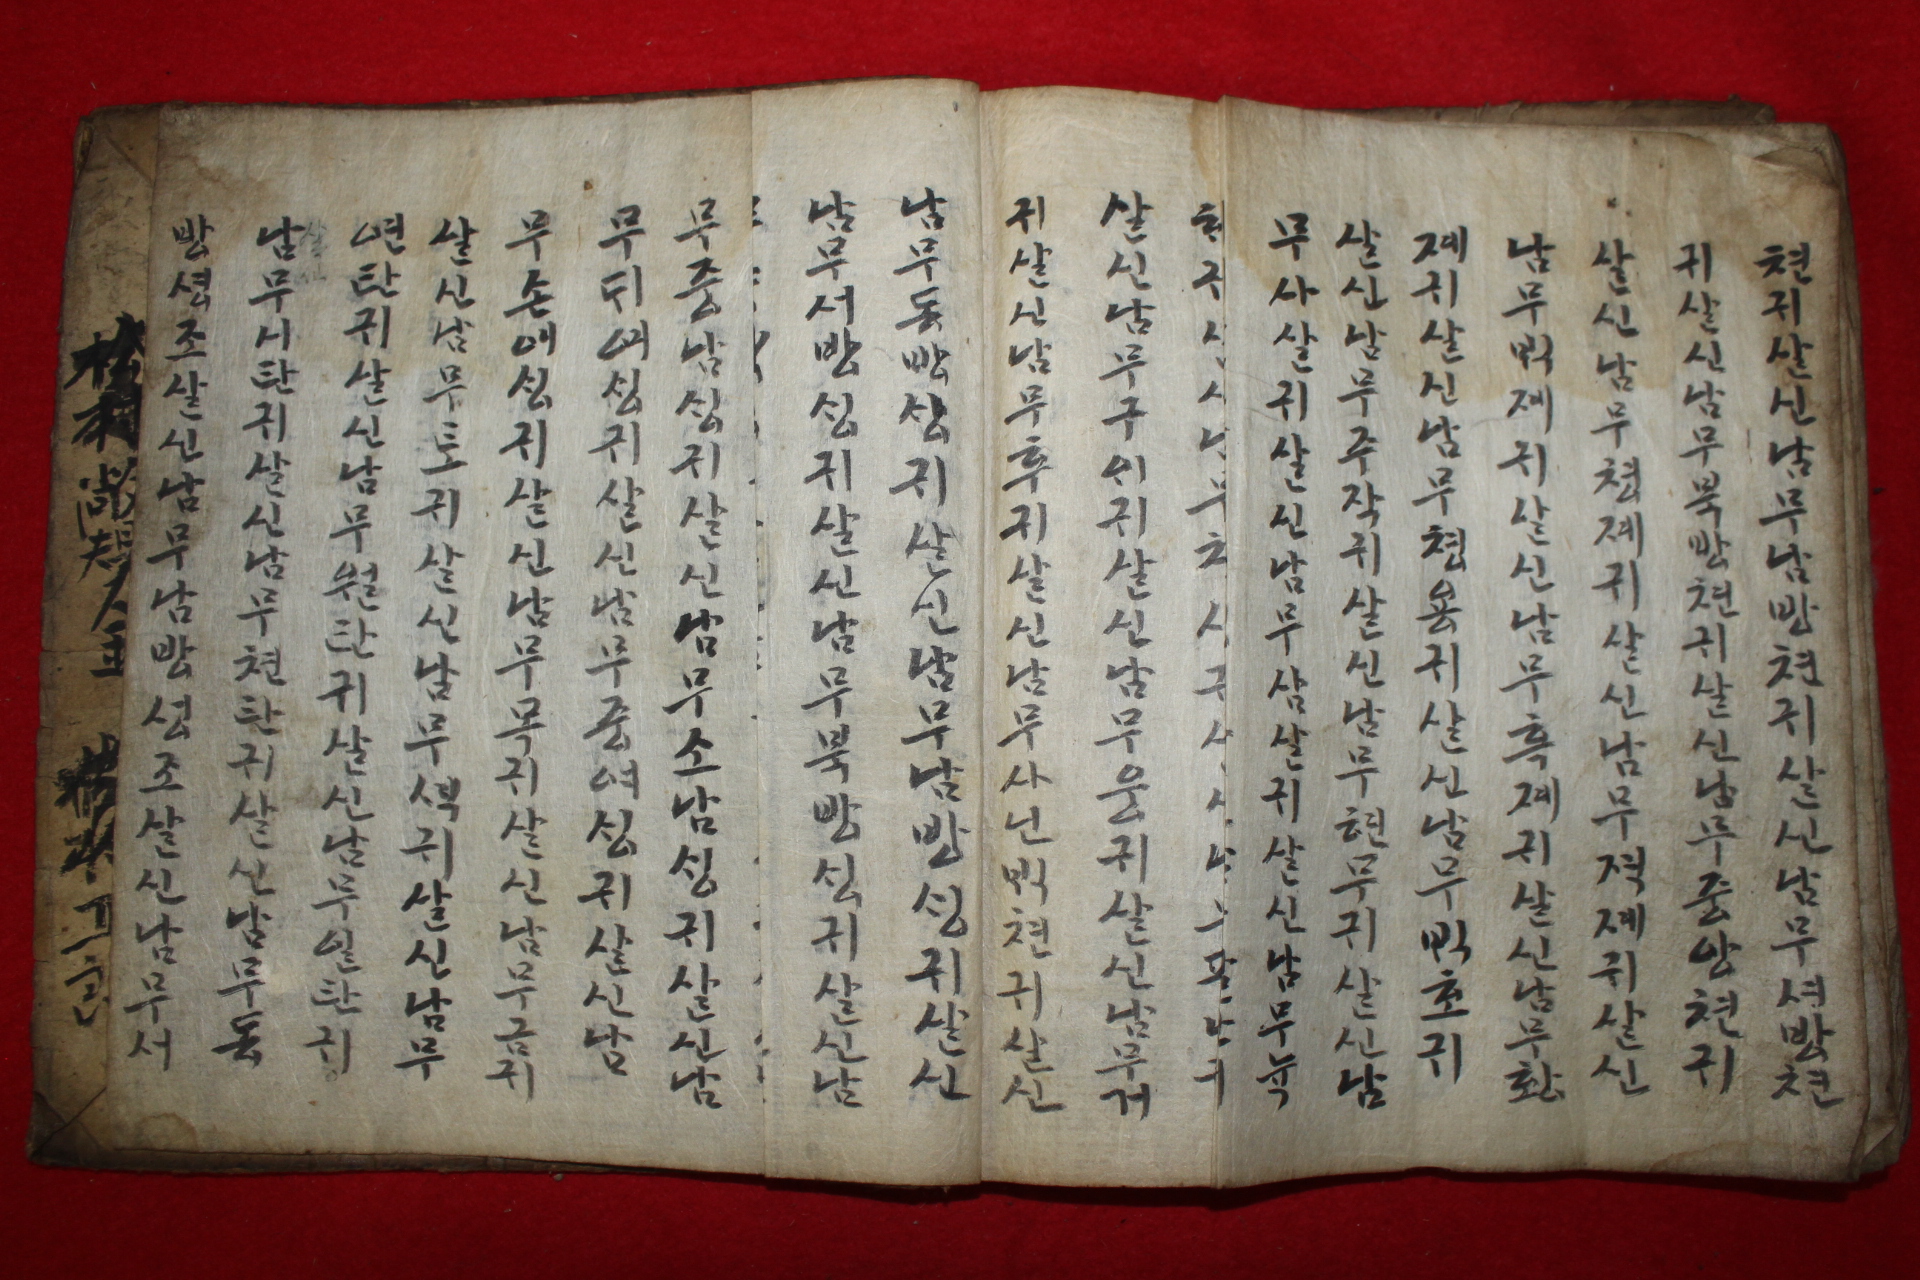 쳔귀살신남무남방쳔귀살신남무셔방쳔
귀살신남무북방쳔귀살신남무중앙쳔귀
살신남무쳥졔귀살신남무젹졔귀살신
남무빅졔귀살신남무흑졔귀살신남무황
졔귀살신남무쳥용귀살신남무빅호귀
살신남무주작귀살신남무현무귀살신남
무사살귀살신남무삼살귀살신남무뉵
살신남무구 귀살신남무운귀살신남무거
귀살신남무후귀살신남무사닌빅쳔귀살신
남무동방싱귀살신남무남방싱귀살신
남무서방싱귀살신남무북방싱귀살신남
무중남싱귀살신남무소남싱귀살신남
무뒤여싱귀살신남무중여싱귀살신남
무손애싱귀살신남무목귀살신남무금귀
살신남무토귀살신남무석귀살신남무
연탄귀살신남무월탄귀살신남무일탄귀
남무시탄귀살신남무쳔탄귀살신남무동
방셩조살신남무남방셩조살신남무서